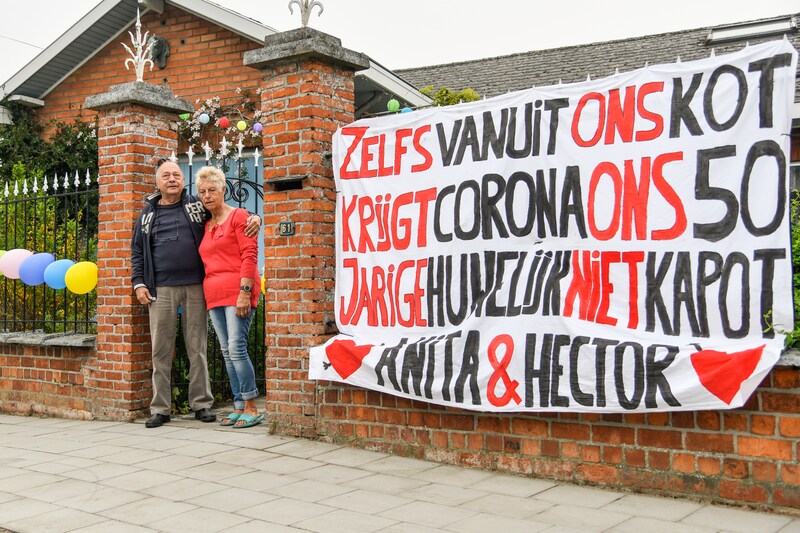 61
ZELFS VANUIT ONS KOT
KRIJGT CORONA ONS 50
JARIGE HUWELIJK NIET KAPOT
ANITA & HECTOR